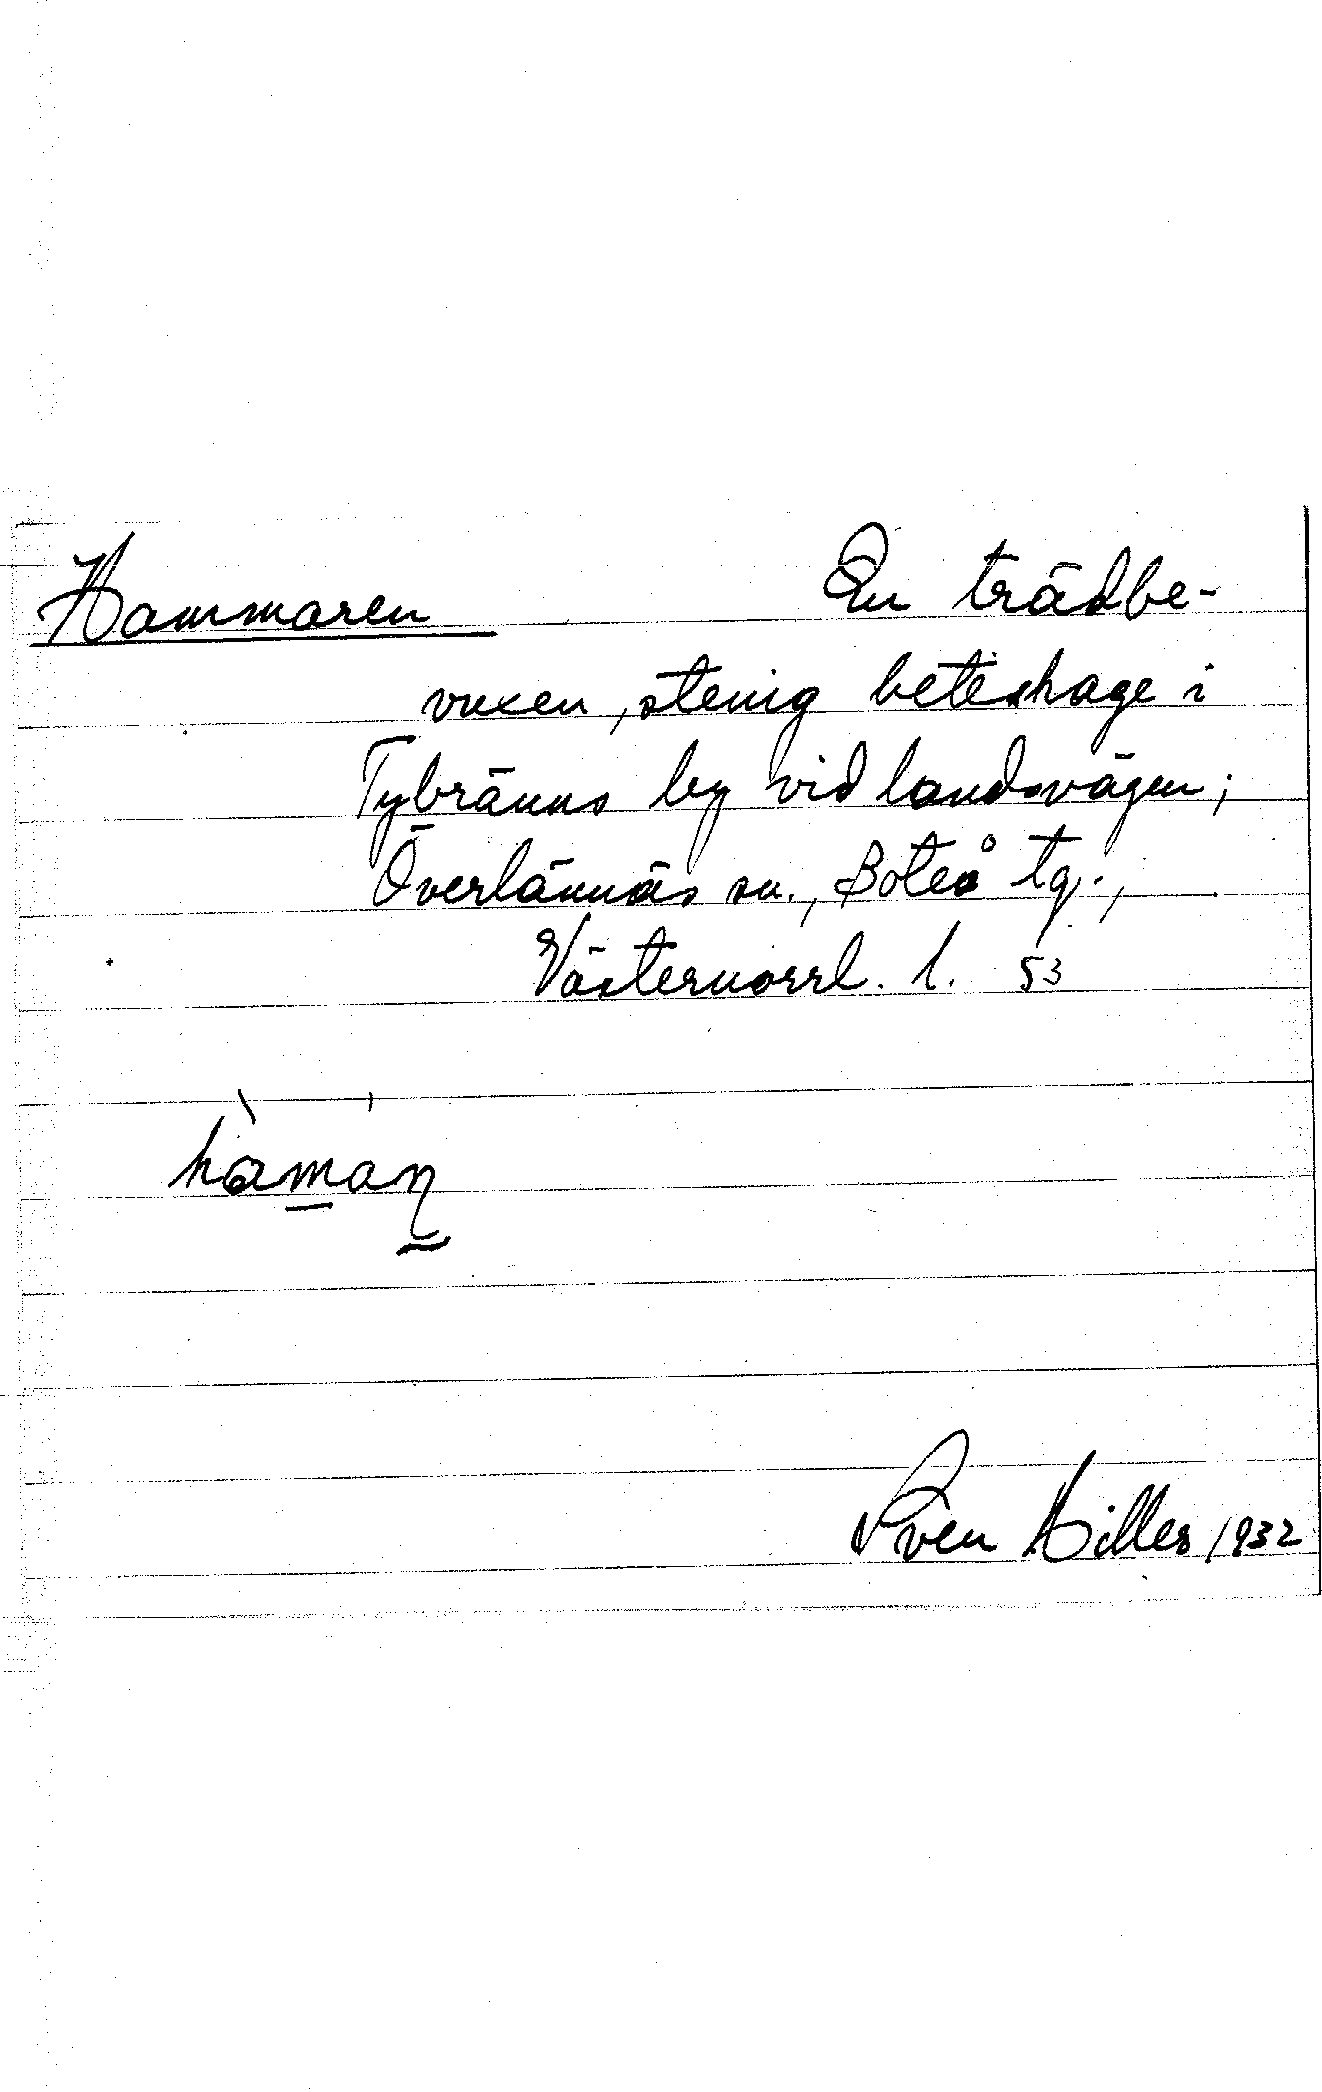 Hammaren En trädbe-
vuxen, stenig beteshage i
Tybränns by vid landsvägen;
Överlännäs sn., Boteå tg.,
Västernorrl. l. 53
hàmaṇ
Sven Hilles 1932